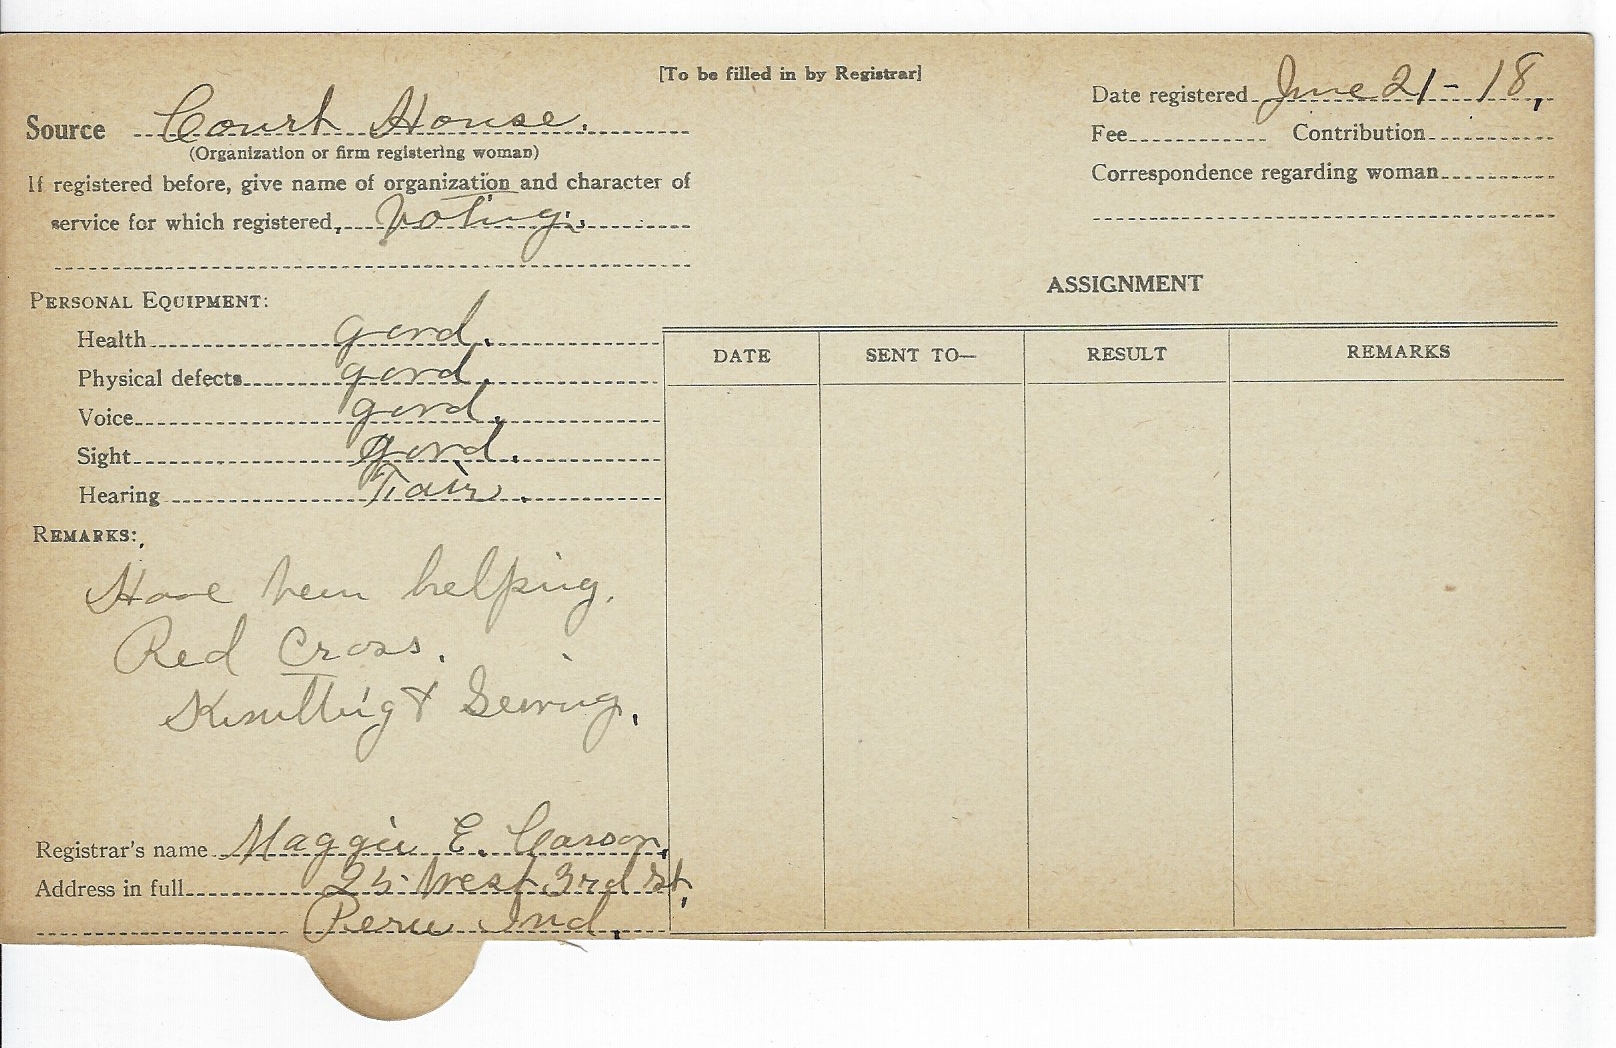 [To be filled in by Registrar]
Source Court House.
(Organization or firm registering woman)
If registered before, give name of organization and character of
service for which registered, Voting.
Date registered June 21-18,
Fee Contribution
Correspondence regarding woman
PERSONAL EQUIPMENT:
Health good.
Physical defects good.
Voice good.
Sight good.
Hearing Fair.
REMARKS:
Have been helping.
Red Cross.
Knitting & Sewing.
Registrar's name Maggie E. Carson,
Address in full 25 West 3rd St,
Peru Ind.
ASSIGNMENT
DATE SENT TO— RESULT REMARKS